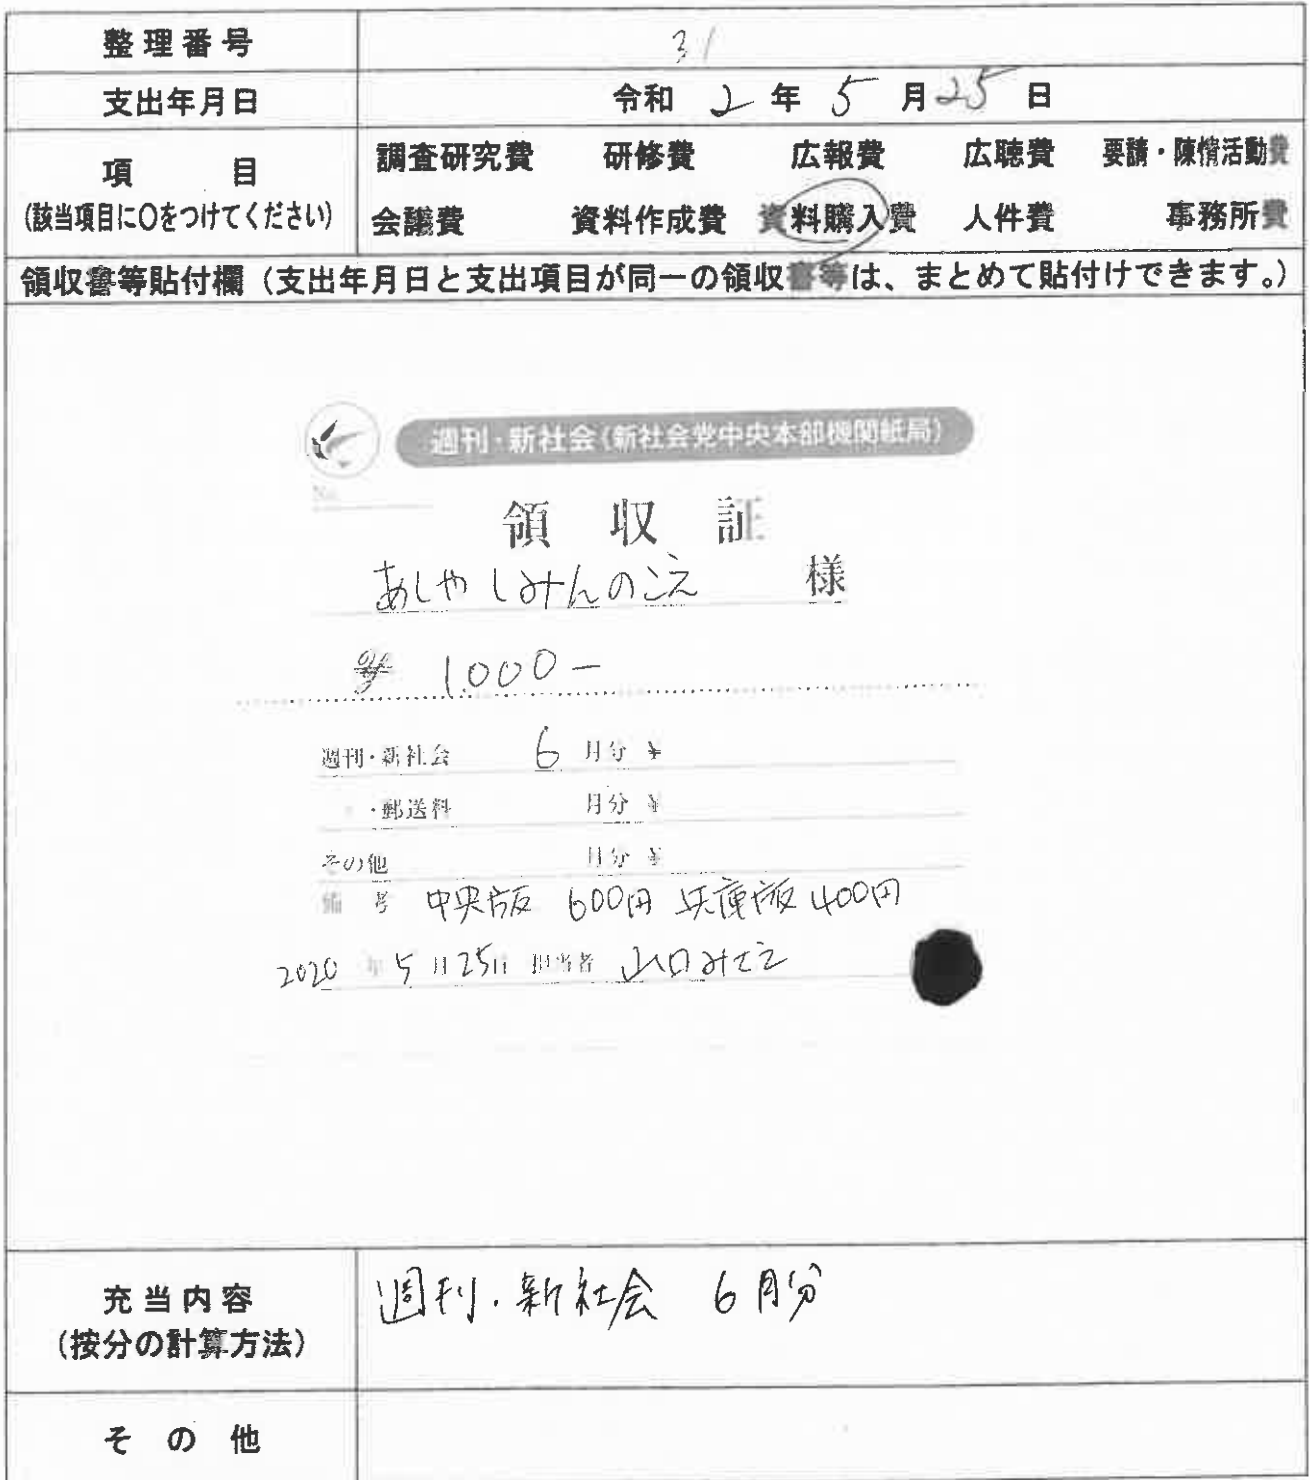 整理番号 31
支出年月日 令和 2 年 5 月 25 日
項 目
(該当項目に○をつけてください)
調査研究費 研修費 広報費 広聴費 要請・陳情活動費
会議費 資料作成費 資料購入費 人件費 事務所費
領収書等貼付欄（支出年月日と支出項目が同一の領収書等は、まとめて貼付けできます。）
週刊・新社会(新社会党中央本部機関紙局)
No.
領 収 証
あしやしみんのこえ 様
¥ 1,000-
週刊・新社会 6 月分 ¥
・郵送料 月分 ¥
その他 月分 ¥
備 考 中央版 600円 兵庫版 400円
2020 年 5 月 25日 担当者 山口みさえ
充当内容
(按分の計算方法)
週刊・新社会 6月分
そ の 他